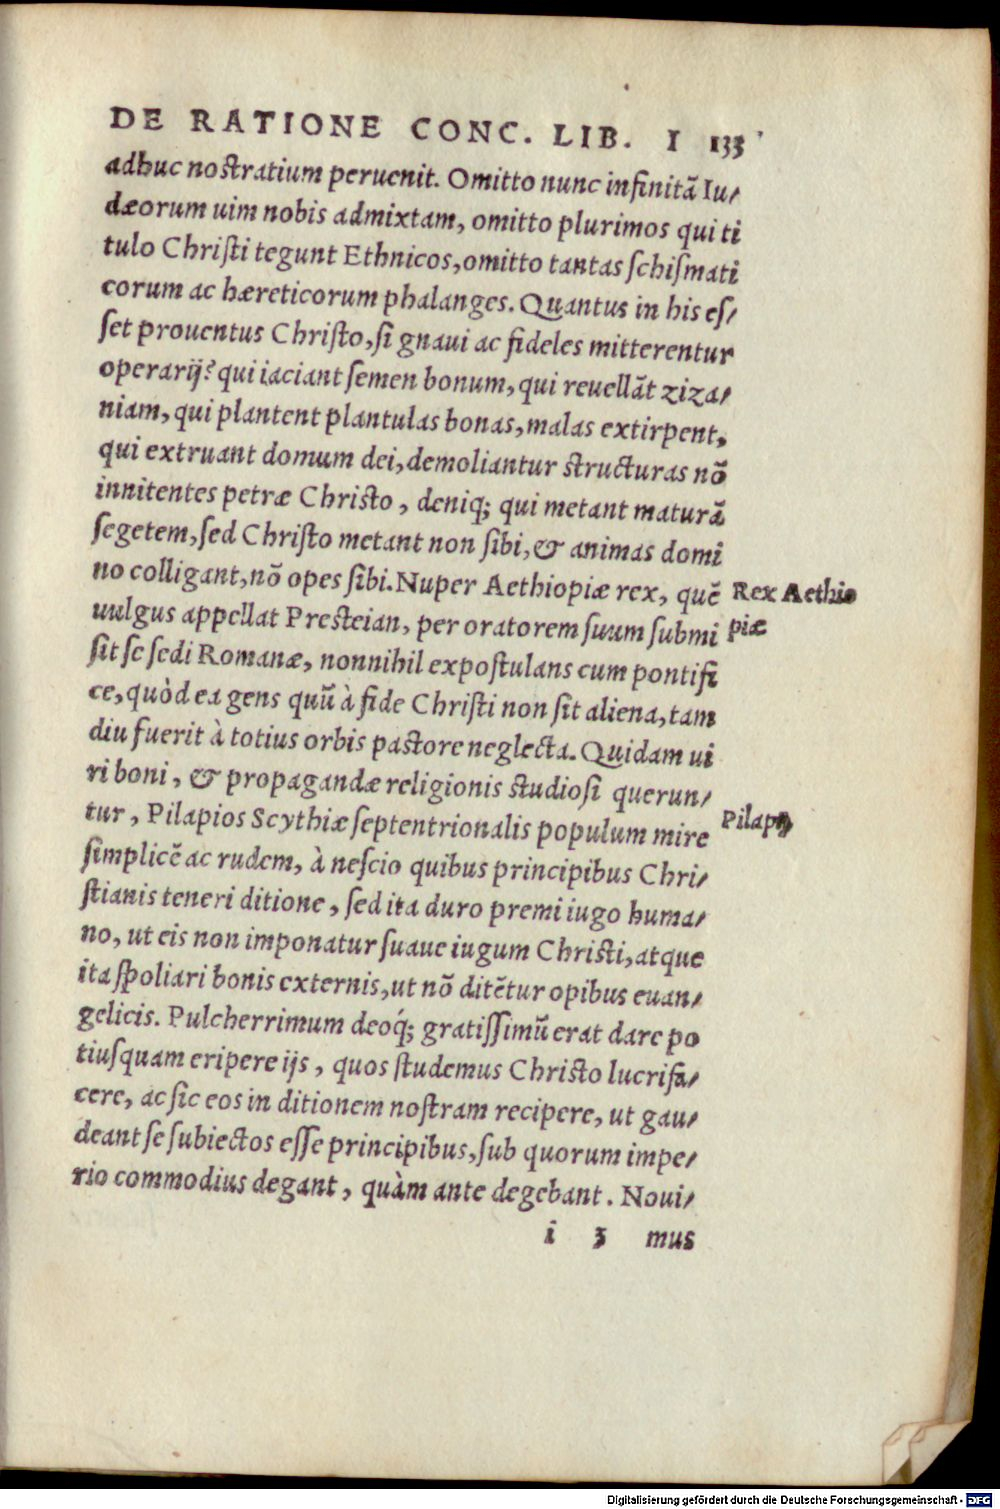 DE RATIONE CONC. LIB. I 133
adhuc nostratium peruenit. Omitto nunc infinitã Iu⸗
dæorum uim nobis admixtam, omitto plurimos qui ti
tulo Chriſti tegunt Ethnicos, omitto tantas ſchiſmati
corum ac hæreticorum phalanges. Quantus in his eſ⸗
ſet prouentus Chriſto, ſi gnaui ac fideles mitterentur
operarij? qui iaciant ſemen bonum, qui reuellãt ziza⸗
niam, qui plantent plantulas bonas, malas extirpent,
qui extruant domum dei, demoliantur structuras nõ
innitentes petræ Chriſto, deniq; qui metant maturã
ſegetem, ſed Chriſto metant non ſibi, & animas domi
no colligant, nõ opes ſibi. Nuper Aethiopiæ rex, quẽ
uulgus appellat Presteian, per oratorem ſuum ſubmi
ſit ſe ſedi Romanæ, nonnihil expoſtulans cum pontifi
ce, quòd ea gens quũ à fide Chriſti non ſit aliena, tam
diu fuerit à totius orbis pastore neglecta. Quidam ui
ri boni, & propagandæ religionis studioſi querun⸗
tur, Pilapios Scythiæ ſeptentrionalis populum mire
ſimplicẽ ac rudem, à neſcio quibus principibus Chri⸗
ſtianis teneri ditione, ſed ita duro premi iugo huma⸗
no, ut eis non imponatur ſuaue iugum Chriſti, atque
ita ſpoliari bonis externis, ut nõ ditẽtur opibus euan⸗
gelicis. Pulcherrimum deoq́; gratiſſimũ erat dare po
tiuſquam eripere ijs, quos ſtudemus Chriſto lucrifa⸗
cere, ac ſic eos in ditionem noſtram recipere, ut gau⸗
deant ſe ſubiectos eſſe principibus, ſub quorum impe⸗
rio commodius degant, quàm ante degebant. Noui⸗
i 3 mus
Rex Aethio
piæ
Pilapij